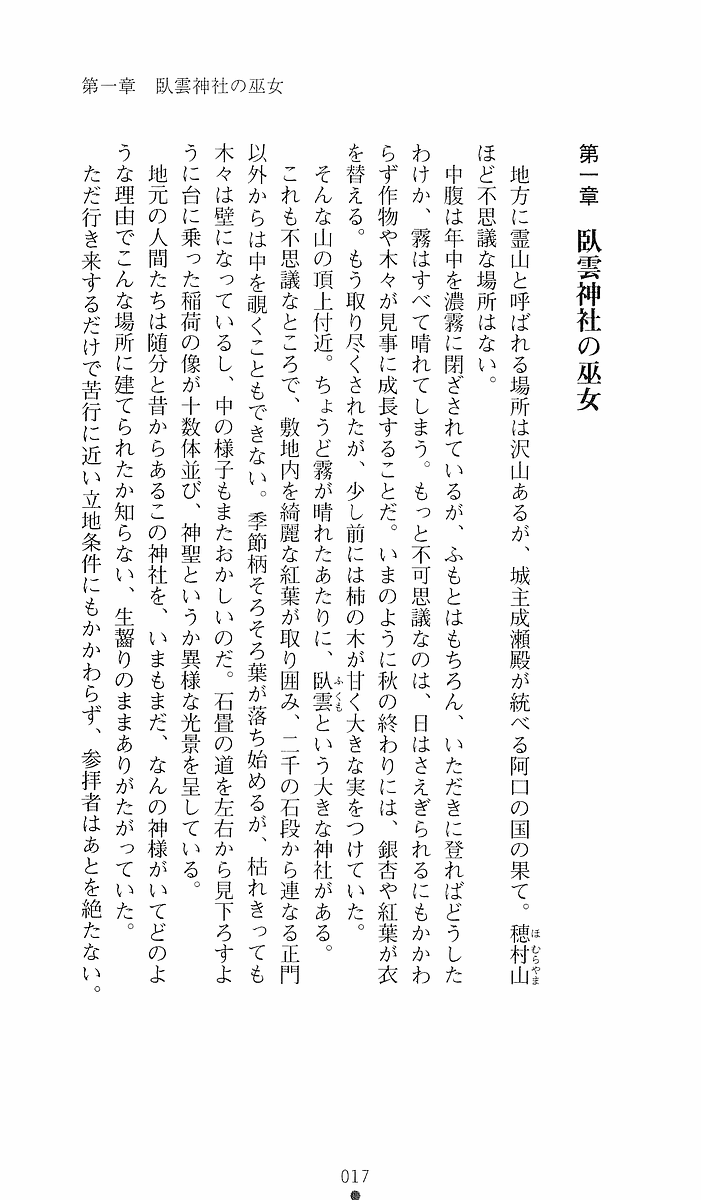 第一章　臥雲神社の巫女
第一章　臥雲神社の巫女
　地方に霊山と呼ばれる場所は沢山あるが、城主成瀬殿が統べる阿口の国の果て。穂村山
ほむらやま
ほど不思議な場所はない。
　中腹は年中を濃霧に閉ざされているが、ふもとはもちろん、いただきに登ればどうした
わけか、霧はすべて晴れてしまう。もっと不可思議なのは、日はさえぎられるにもかかわ
らず作物や木々が見事に成長することだ。いまのように秋の終わりには、銀杏や紅葉が衣
を替える。もう取り尽くされたが、少し前には柿の木が甘く大きな実をつけていた。
　そんな山の頂上付近。ちょうど霧が晴れたあたりに、臥雲という大きな神社がある。
ふくも
　これも不思議なところで、敷地内を綺麗な紅葉が取り囲み、二千の石段から連なる正門
以外からは中を覗くこともできない。季節柄そろそろ葉が落ち始めるが、枯れきっても
木々は壁になっているし、中の様子もまたおかしいのだ。石畳の道を左右から見下ろすよ
うに台に乗った稲荷の像が十数体並び、神聖というか異様な光景を呈している。
　地元の人間たちは随分と昔からあるこの神社を、いまもまだ、なんの神様がいてどのよ
うな理由でこんな場所に建てられたか知らない、生齧りのままありがたがっていた。
　ただ行き来するだけで苦行に近い立地条件にもかかわらず、参拝者はあとを絶たない。
017